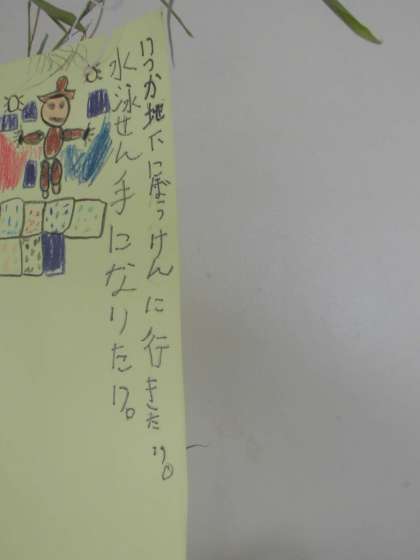 いつか地下にぼうけんに行きたい。
水泳せん手になりたい。